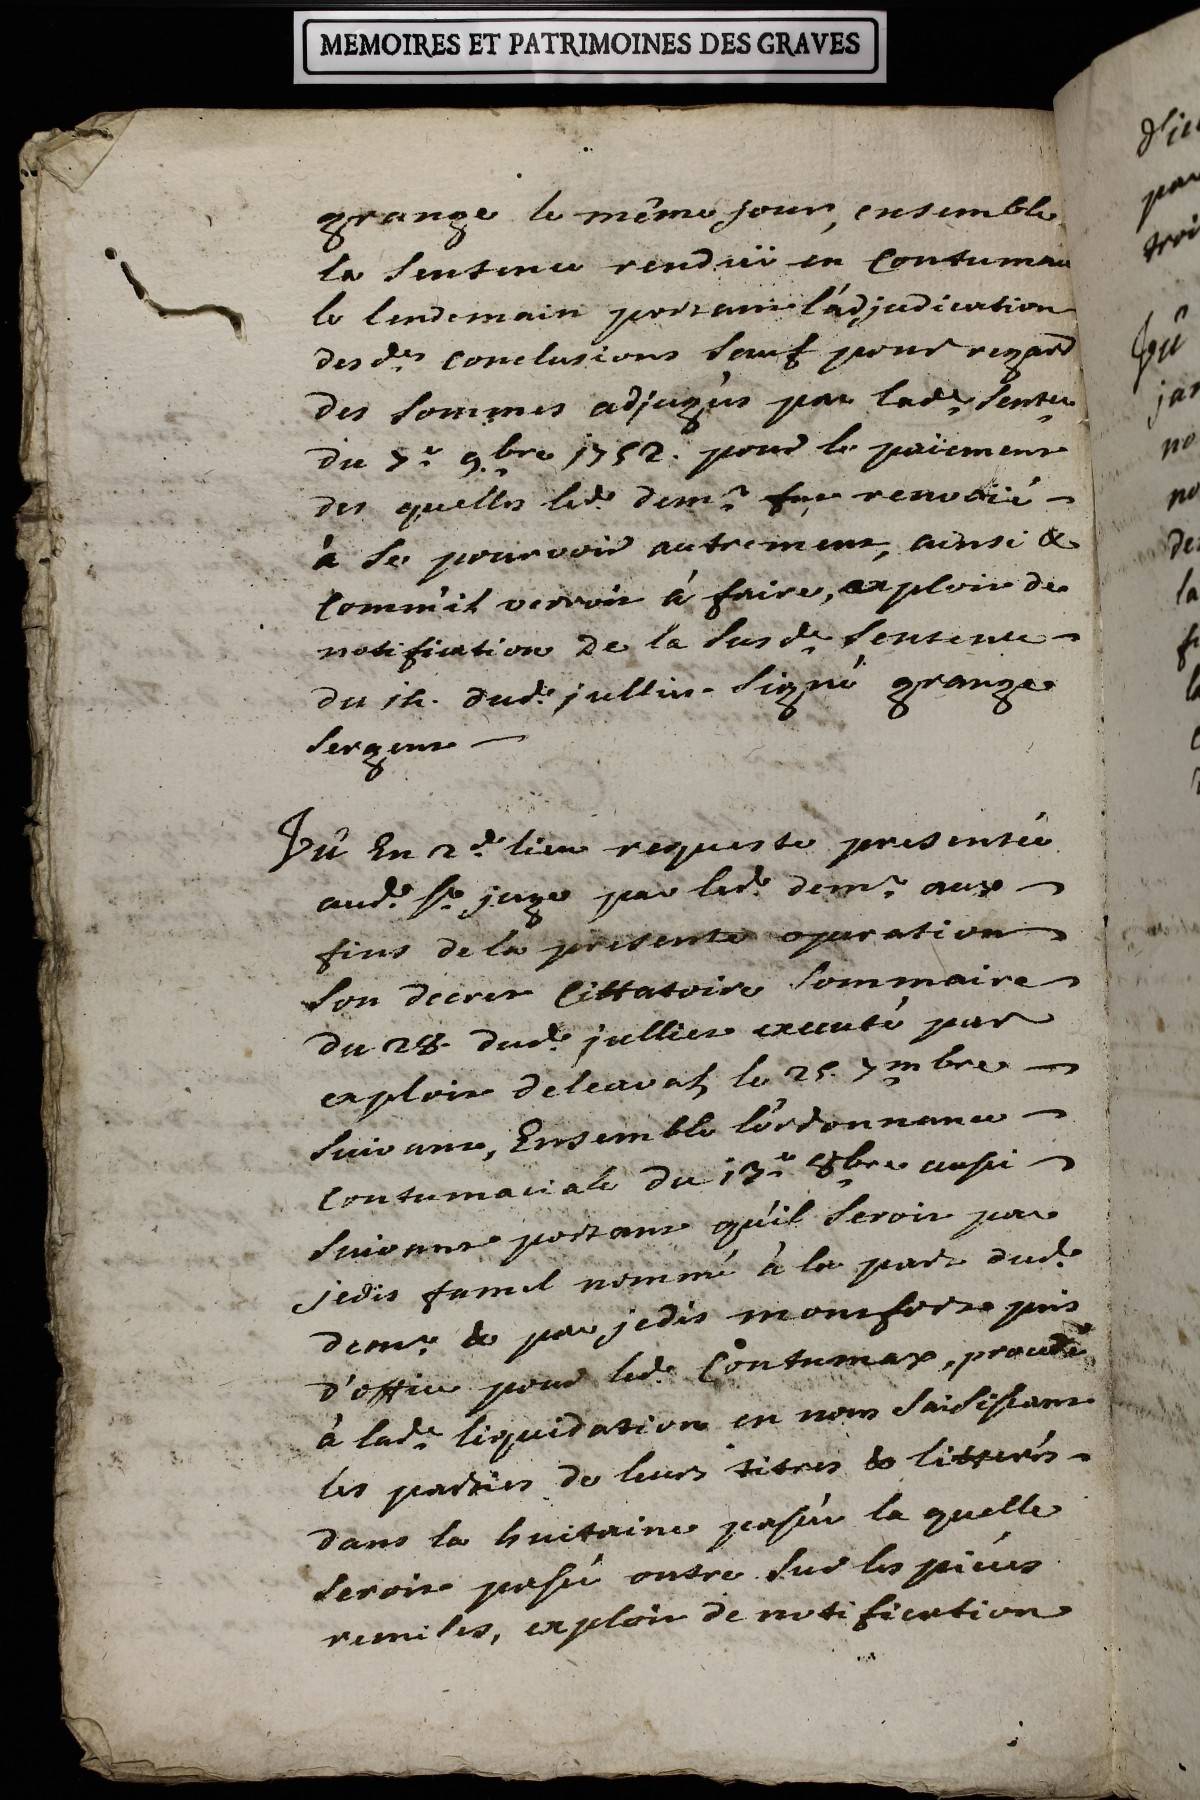 MEMOIRES ET PATRIMOINES DES GRAVES
grange le même jour, ensemble
la sentence renduë en contumau
le lendemain portant l'adjudication
desdes conclusions sauf pour regard
des sommes adjugées par lade sentce
du 7e 9bre 1752. pour le païement
des quelles led. demr fut renvoié
à se pourvoir autrement, ainsi &
comm'il verroit à faire, exploit de
notification de la susde sentence
du 14. dud. jullier signé grange
sergent
Vû En 2d lieu requeste presentée
aud. sr juge par led. demr aux
fins de la presente operation
son decret cittatoire sommaire
du 28. dud. jullier executé par
exploit de le 25. 7mbre
suivant, Ensemble l'ordonnance
contumaciale du 13e 8bre aussi
suivant portant qu'il seroit par
jedis famel nommé à la part dud.
demr & par jedis monfort pris
d'office pour led. Contumax, procedé
à lade liquidation en nous saisissant
les parties de leurs titres & litterés
dans la huitaine passée la quelle
seroit passé outre sur les pièces
remises, exploit de notification
d'ic
par
troi
Vû
jan
no
no
de
la
f